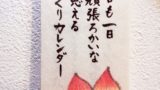 も一日
頑張ろかいな
と思える
くりカレンダー